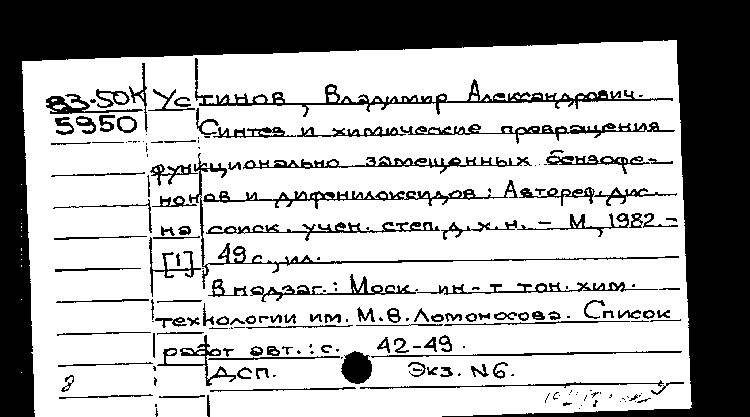 83-50К Устинов, Владимир Александрович.
5950 Синтез и химические превращения
функционально замещенных бензофе-
нонов и дифенилоксидов: Автореф. дис.
на соиск. учен. степ. д. х. н. - М., 1982. -
[1], 49 с., ил.
В надзаг.: Моск. ин-т тон. хим.
технологии им. М.В. Ломоносова. Список
работ авт.: с. 42-49.
ДСП. Экз. N6.